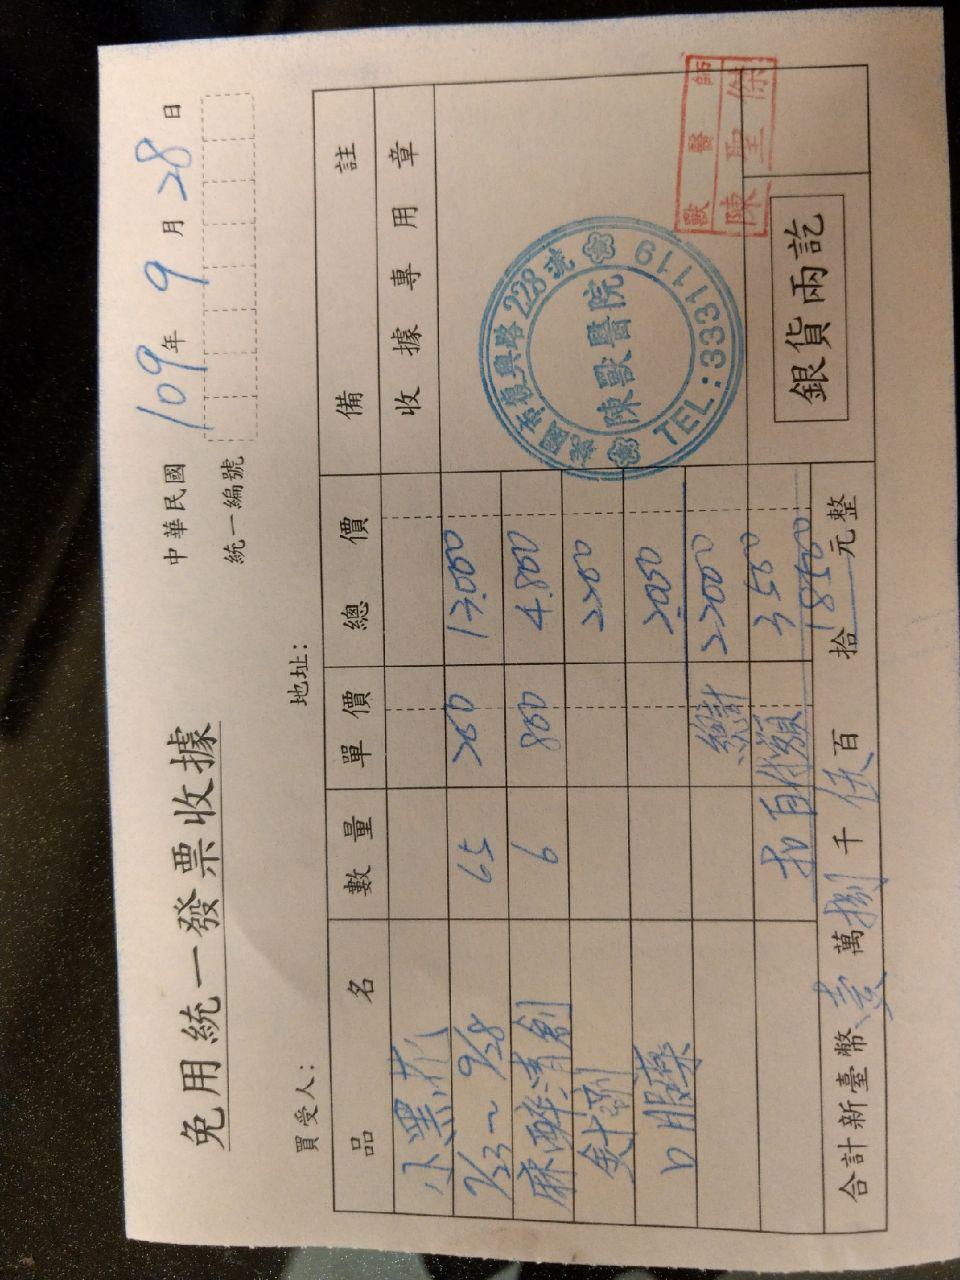 免用統一發票收據
中華民國 109 年 9 月 28 日
統一編號
買受人：
地址：
品名 數量 單價 總價 備註
小黑
7/23～9/28 65 200 13.000
麻醉清創 6 800 4.800
針劑 2200
口服藥 2.000
總計 22000
扣自付額 3500
18500
合計新臺幣 壹 萬 捌 千 伍 百 拾 元整
收據專用章
桃園市復興路228號
陳獸醫院
TEL:3331119
獸醫師
陳聖傑
銀貨兩訖